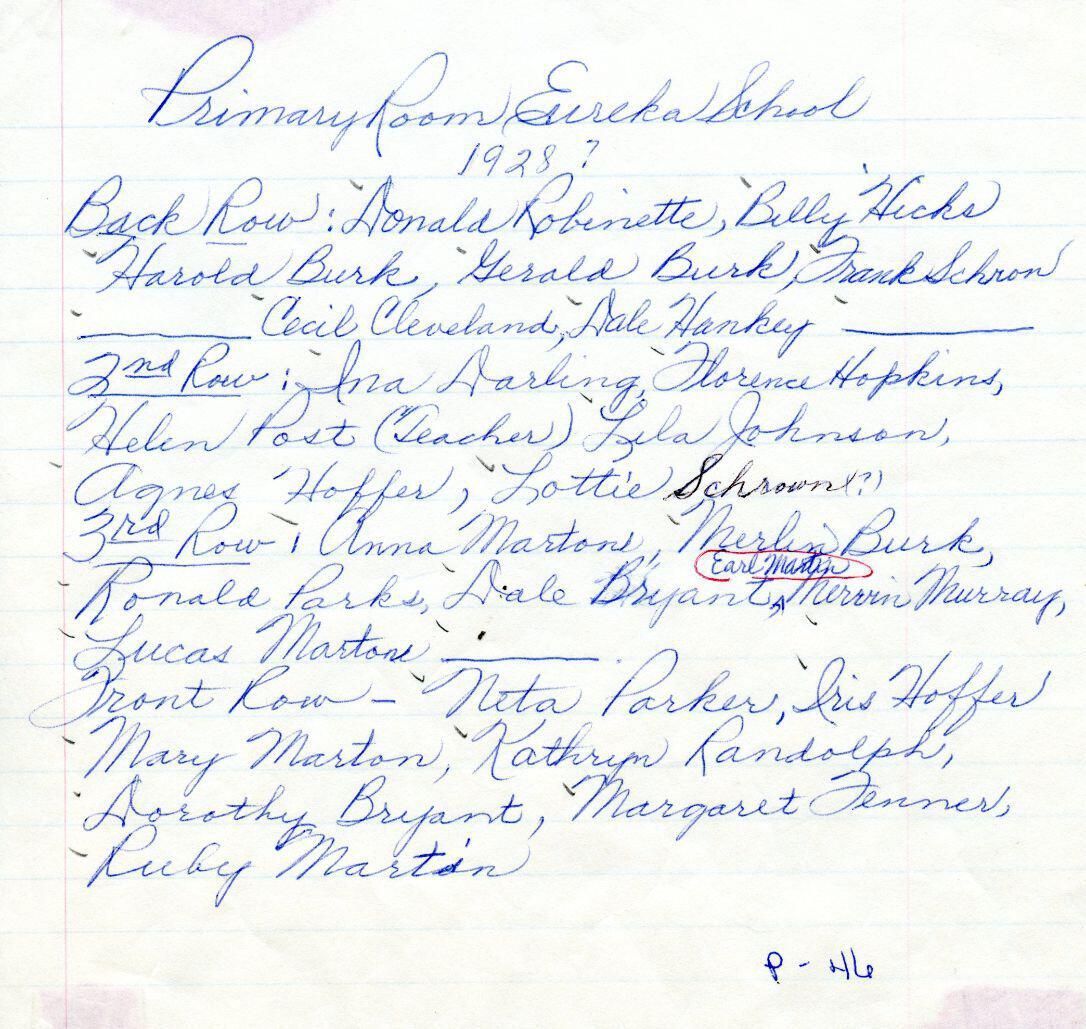 Primary Room Eureka School
1928?
Back Row: Donald Robinette, Billy Hicks
Harold Burk, Gerald Burk, Frank Schron
______ Cecil Cleveland, Dale Hankey ______
2nd Row: Ina Darling, Florence Hopkins,
Helen Post (Teacher) Lela Johnson,
Agnes Hoffer, Lottie Schrown(?)
3rd Row: Anna Martone, Merlin Burk,
Earl Martin
Ronald Parks, Dale Bryant, Mervin Murray,
Lucas Martone ______
Front Row - Neta Parker, Iris Hoffer
Mary Marton, Kathryn Randolph,
Dorothy Bryant, Margaret Fenner,
Ruby Martin
P - 46